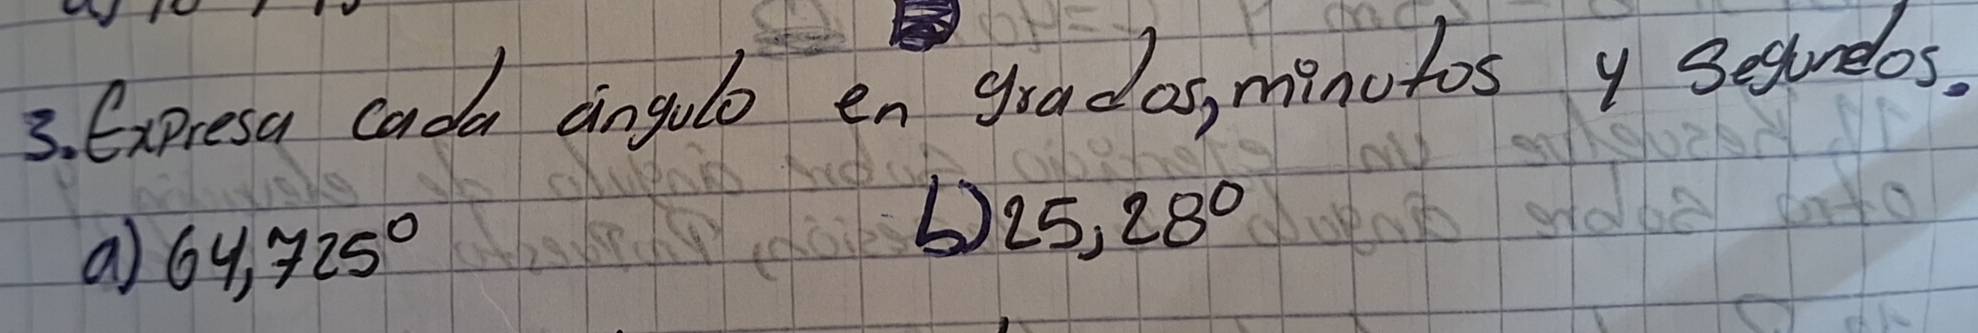 3. Expresa cada ángulo en grados, minutos y segundos.
a) 64,725° b) 25,28°